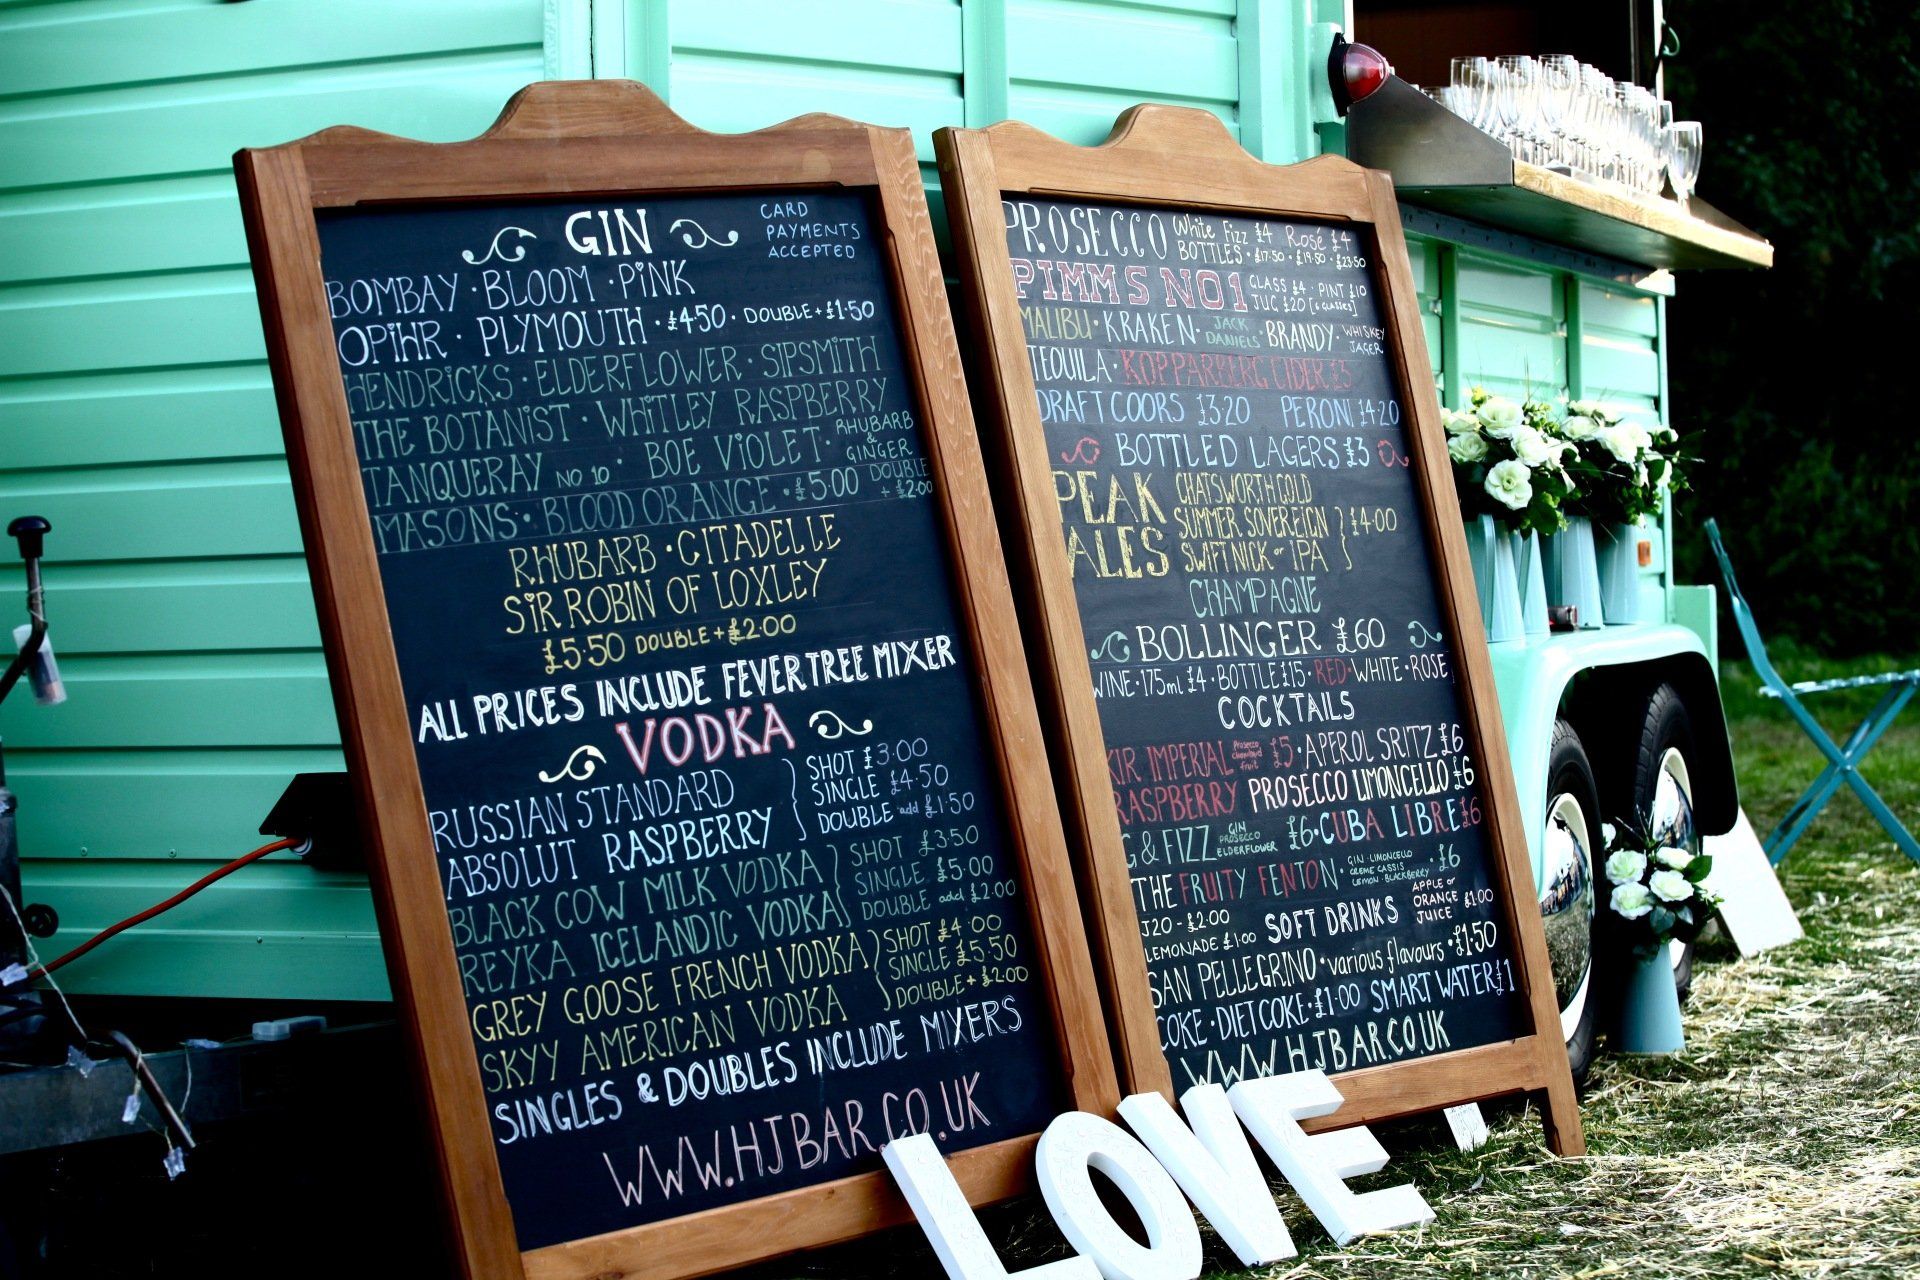 GIN
CARD
PAYMENTS
ACCEPTED
BOMBAY · BLOOM · PINK
OPIHR · PLYMOUTH · £4·50 · DOUBLE + £1·50
HENDRICKS · ELDERFLOWER · SIPSMITH
THE BOTANIST · WHITLEY RASPBERRY
TANQUERAY NO 10 · BOE VIOLET · RHUBARB & GINGER
MASONS · BLOOD ORANGE · £5·00 DOUBLE + £2·00
RHUBARB · CITADELLE
SIR ROBIN OF LOXLEY
£5·50 DOUBLE + £2·00
ALL PRICES INCLUDE FEVERTREE MIXER
VODKA
RUSSIAN STANDARD
ABSOLUT RASPBERRY
SHOT £3·00
SINGLE £4·50
DOUBLE add £1·50
BLACK COW MILK VODKA
REYKA ICELANDIC VODKA
SHOT £3·50
SINGLE £5·00
DOUBLE add £2·00
GREY GOOSE FRENCH VODKA
SKYY AMERICAN VODKA
SHOT £4·00
SINGLE £5·50
DOUBLE + £2·00
SINGLES & DOUBLES INCLUDE MIXERS
WWW.HJBAR.CO.UK
PROSECCO White Fizz £4 Rosé £4
BOTTLES · £17·50 · £19·50 · £23·50
PIMMS NO1 GLASS £4 · PINT £10
JUG £20 [6 GLASSES]
MALIBU · KRAKEN · JACK DANIELS · BRANDY · WHISKEY JAGER
TEQUILA · KOPPARBERG CIDER £5
DRAFT COORS £3·20 PERONI £4·20
BOTTLED LAGERS £3
PEAK
ALES
CHATSWORTH GOLD
SUMMER SOVEREIGN
SWIFT NICK or IPA
£4·00
CHAMPAGNE
BOLLINGER £60
WINE · 175ml £4 · BOTTLE £15 · RED · WHITE · ROSE
COCKTAILS
KIR IMPERIAL Prosecco fruit £5 · APEROL SRITZ £6
RASPBERRY PROSECCO LIMONCELLO £6
G & FIZZ GIN PROSECCO ELDERFLOWER £6 · CUBA LIBRE £6
THE FRUITY FENTON · GIN · LIMONCELLO CREME CASSIS LEMON · BLACKBERRY · £6
J20 - £2·00
LEMONADE £1·00
SOFT DRINKS
APPLE or ORANGE JUICE £1·00
SAN PELLEGRINO · various flavours · £1·50
COKE · DIET COKE · £1·00 SMART WATER £1
WWW.HJBAR.CO.UK
LOVE